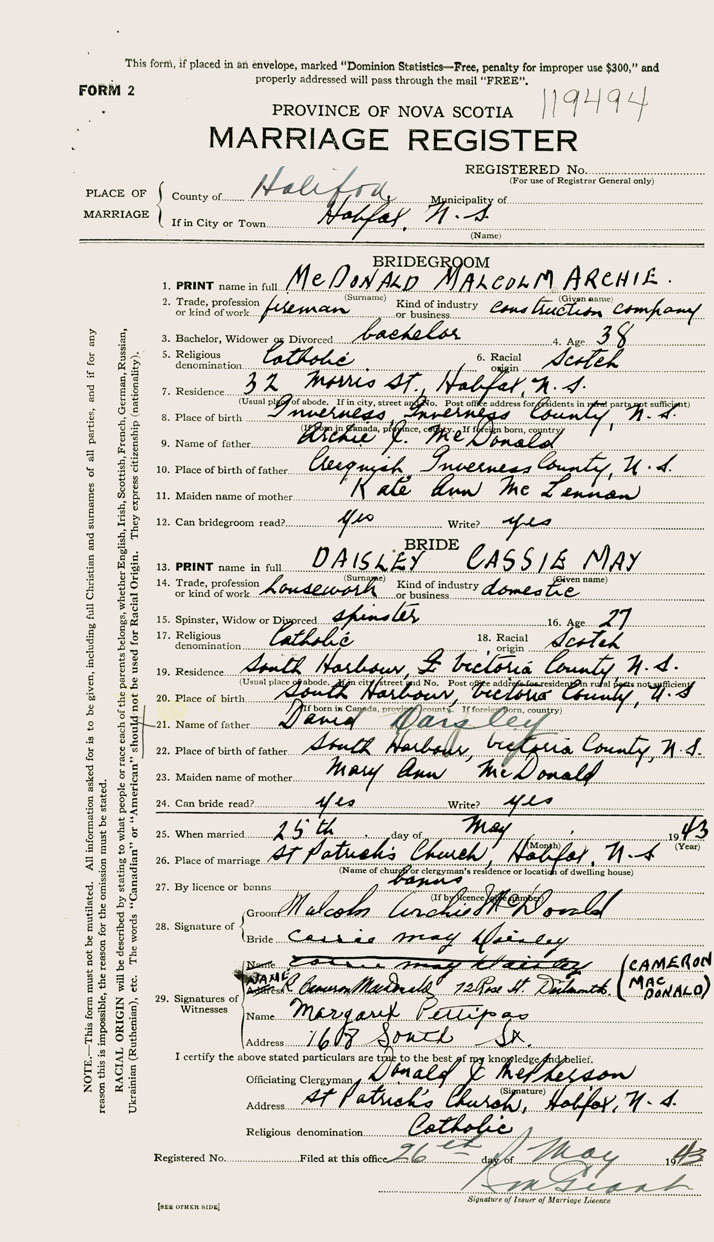 This form, if placed in an envelope, marked "Dominion Statistics—Free, penalty for improper use $300," and
properly addressed will pass through the mail "FREE".
FORM 2
119494
PROVINCE OF NOVA SCOTIA
MARRIAGE REGISTER
REGISTERED No.
(For use of Registrar General only)
PLACE OF MARRIAGE
County of Halifax Municipality of
If in City or Town Halifax, N.S
(Name)
BRIDEGROOM
1. PRINT name in full McDONALD MALCOLM ARCHIE.
(Surname) (Given name)
2. Trade, profession or kind of work fireman Kind of industry or business construction company
3. Bachelor, Widower or Divorced bachelor 4. Age 38
5. Religious denomination Catholic 6. Racial origin Scotch
7. Residence 32 Morris St., Halifax, N.S.
(Usual place of abode. If in city, street and No. Post office address for residents in rural parts not sufficient)
8. Place of birth Inverness, Inverness County, N.S.
(If born in Canada, province, county. If foreign born, country)
9. Name of father Archie J. McDonald
10. Place of birth of father Inverness County, N.S.
11. Maiden name of mother Kate Ann McLennon
12. Can bridegroom read? yes Write? yes
BRIDE
13. PRINT name in full DAISLEY CASSIE MAY
(Surname) (Given name)
14. Trade, profession or kind of work housework Kind of industry or business domestic
15. Spinster, Widow or Divorced spinster 16. Age 27
17. Religious denomination Catholic 18. Racial origin Scotch
19. Residence South Harbour, Victoria County, N.S.
(Usual place of abode. If in city street and No. Post office address for residents in rural parts not sufficient)
20. Place of birth South Harbour, Victoria County, N.S
(If born in Canada, province, county. If foreign born, country)
21. Name of father David Daisley
22. Place of birth of father South Harbour, Victoria County, N.S.
23. Maiden name of mother Mary Ann McDonald
24. Can bride read? yes Write? yes
25. When married 25th day of May 1943
(Month) (Year)
26. Place of marriage St Patrick's Church, Halifax, N-S
(Name of church or clergyman's residence or location of dwelling house)
27. By licence or banns banns
(If by licence, give number)
28. Signature of
Groom Malcolm Archie McDonald
Bride Cassie May Daisley
29. Signatures of Witnesses
Name Cassie May Daisley
NAME Address Cameron MacDonald 72 Rose St. Dartmouth. (CAMERON MACDONALD)
Name Margaret Pettipas
Address 168 South St.
I certify the above stated particulars are true to the best of my knowledge and belief.
Officiating Clergyman Donald J McPherson
(Signature)
Address St Patrick's Church, Halifax, N.S.
Religious denomination Catholic
Registered No. Filed at this office 26th day of May 1943
Signature of Issuer of Marriage Licence
[SEE OTHER SIDE]
NOTE.—This form must not be mutilated. All information asked for is to be given, including full Christian and surnames of all parties, and if for any
reason this is impossible, the reason for the omission must be stated.
RACIAL ORIGIN will be described by stating to what people or race each of the parents belongs, whether English, Irish, Scottish, French, German, Russian,
Ukrainian (Ruthenian), etc. The words "Canadian" or "American" should not be used for Racial Origin. They express citizenship (nationality).